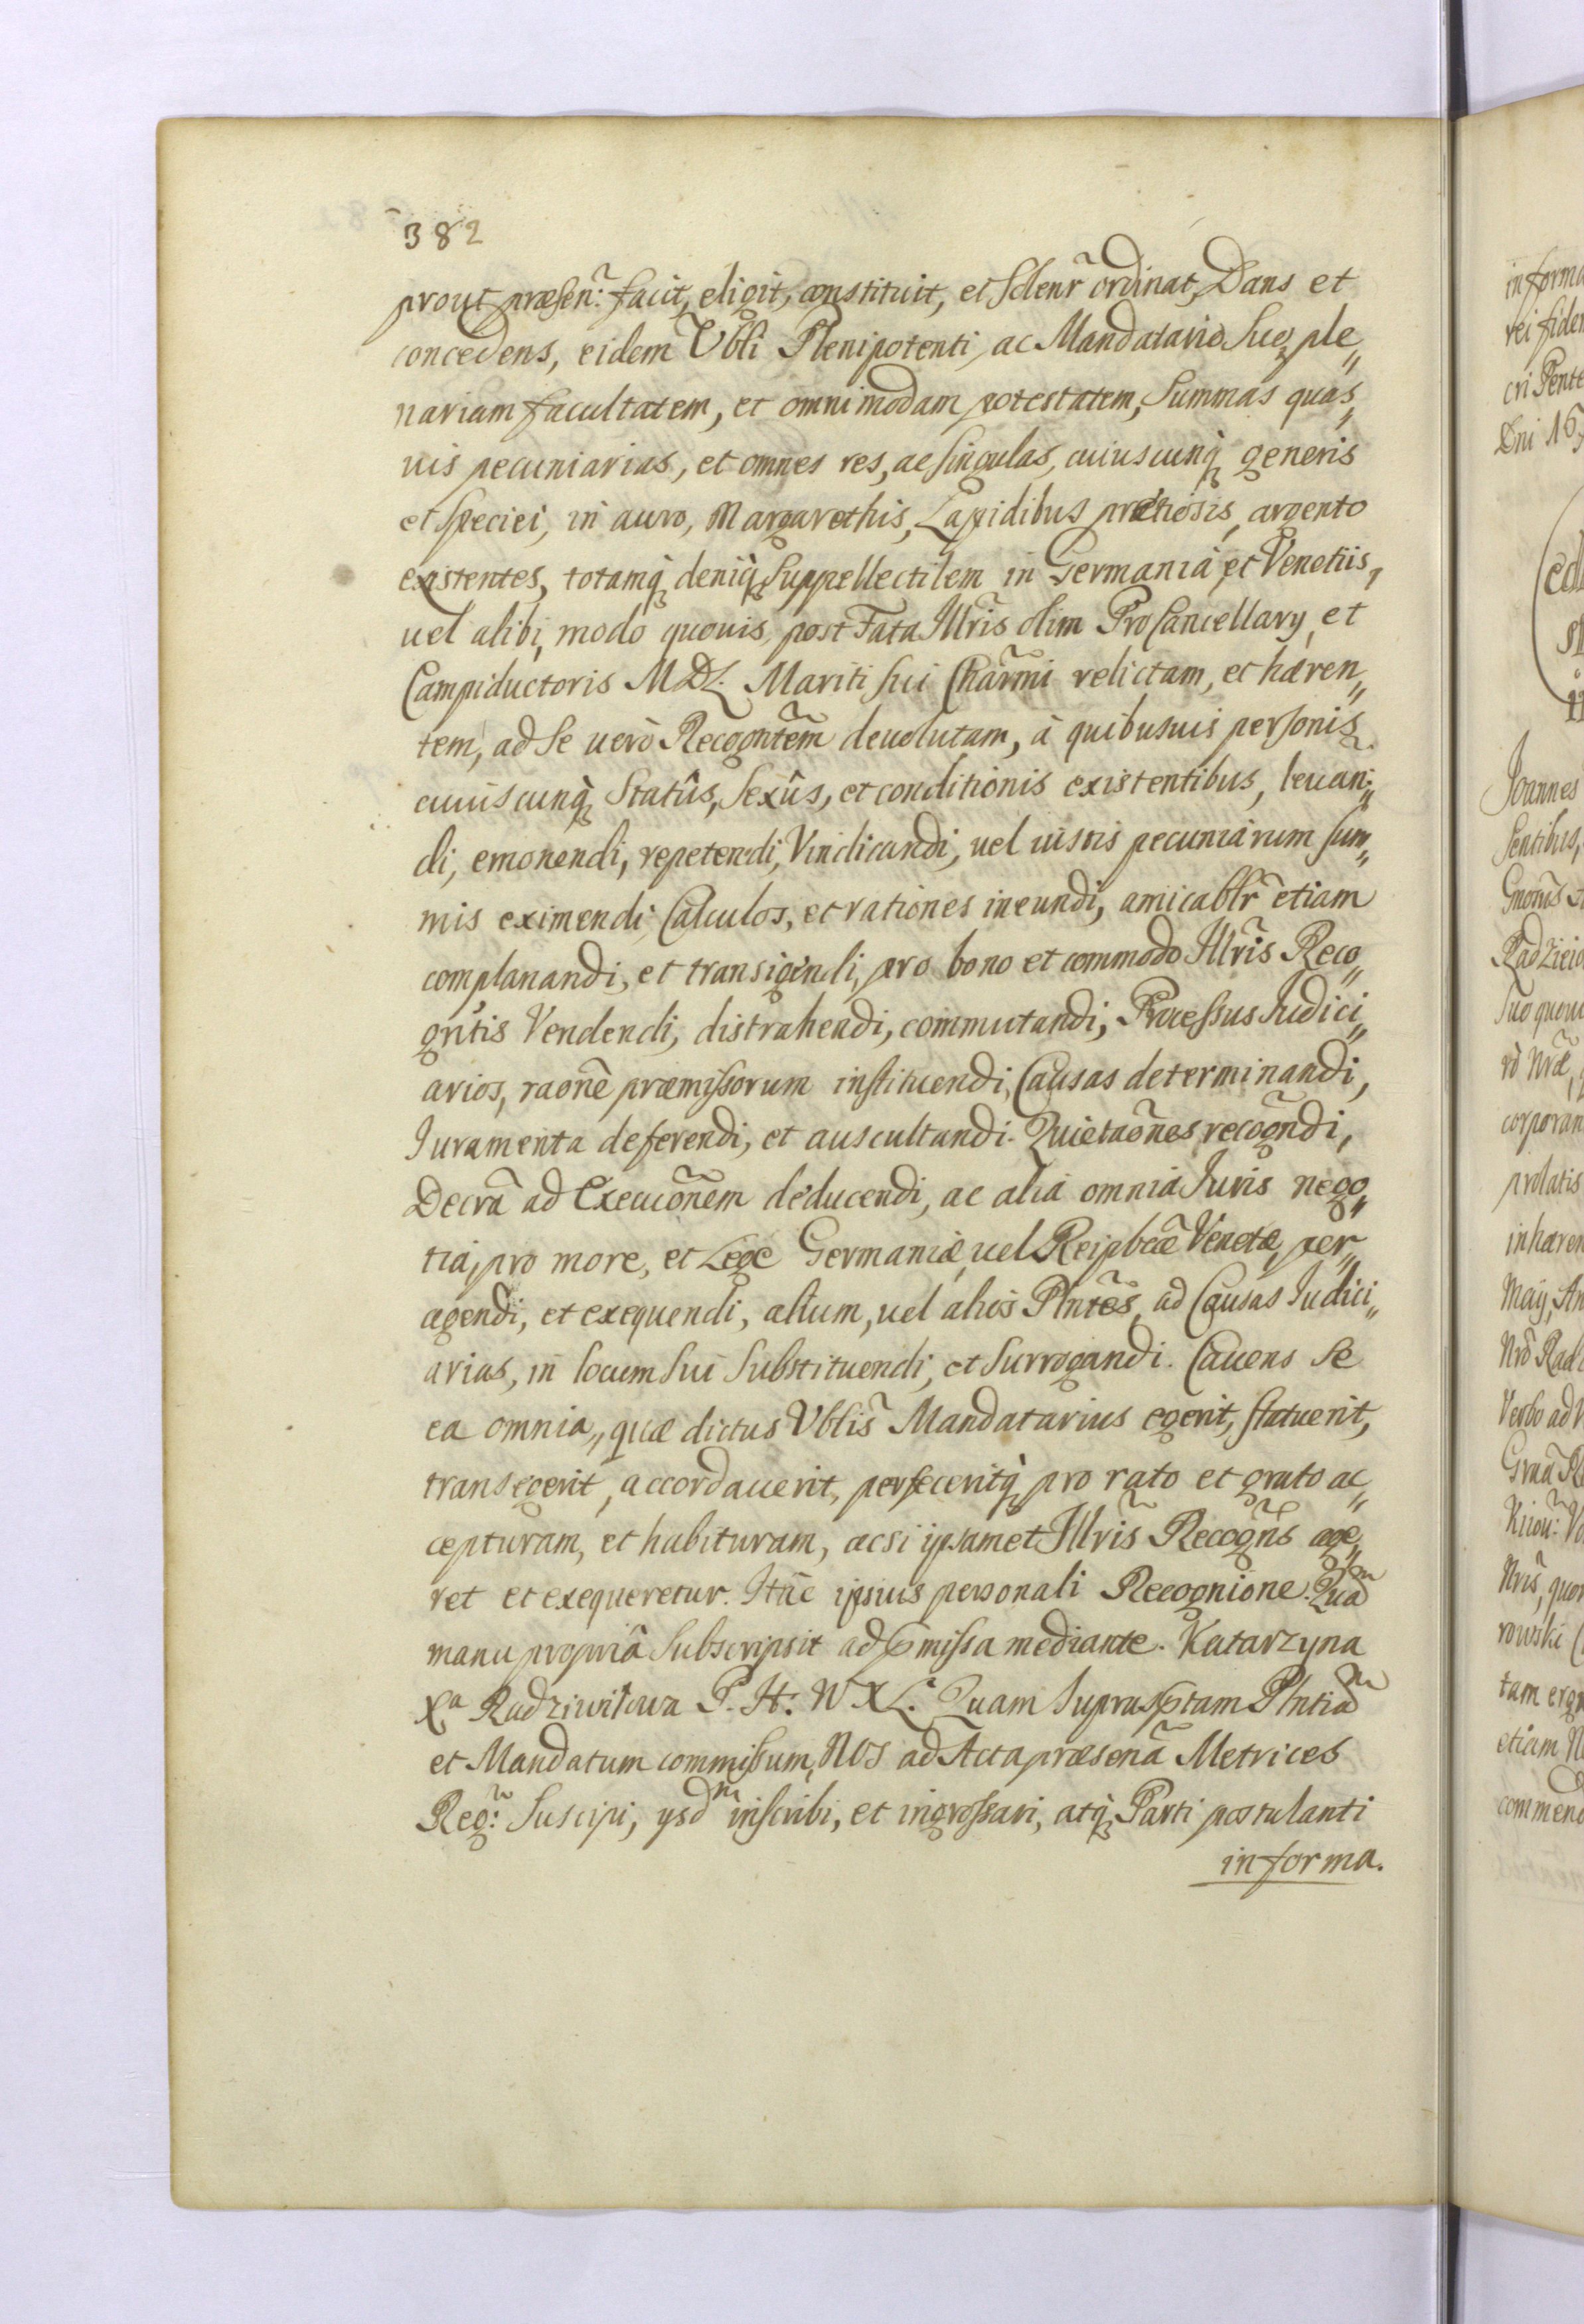 382
prout præsen: facit, eligit, constituit, et solenr̃ ordinat, Dans et
concedens, eidem Vbli Plenipotenti, ac Mandatario Suo, ple„
nariam facultatem, et omnimodam potestatem, Summas quas„
uis pecuniarias, et omnes res, ac singulas, cuiuscunq; generis
et speciei, in auro, Margarethis, Lapidibus prætiosis, argento
existentes, totamq; deniq; Suppellectilem in Germaniâ et Venetiis,
uel alibi, modo quouis, post Fata Illr̃is olim ProCancellary, et
Campiductoris MDL. Mariti sui Charm̃i relictam, et hæren„
tem, ad Se uerò Recogntẽm deuolutam, à quibusuis personis
cuiuscunq; Statûs, Sexûs, et conditionis existentibus, leuan„
di, emonendi, repetendi, Vindicandi, uel iustis pecuniarum sum„
mis eximendi, Calculos, et rationes ineundi, amicablr̃ etiam
complanandi, et transigendi, pro bono et commodo Illr̃is Reco„
gntis Vendendi, distrahendi, commutandi, Processus Iudici„
arios, raone præmissorum instituendi, Causas determinandi,
Iuramenta deferendi, et auscultandi. Quietaõnes, recogñdi,
Decrã ad Execuõnem deducendi, ac alia omnia Iuris nego„
tia, pro more, et Lege Germaniæ, uel Reipbcæ Venetæ, per„
agendi, et exequendi, alium, uel alios Plntẽs, ad Causas Iudici„
arias, in locum sui Substituendi, et Surrogandi. Cauens Se
ea omnia, quæ dictus Vblis̃ Mandatarius egerit, statuerit,
transegerit, accordauerit, perfeceritq; pro rato et grato ac„
cepturam, et habituram, acsi ipsamet Illr̃is Recogñs age„
ret et exequeretur. Itãe ipsius personali Recognione. Quã
manu propriâ Subscripsit ad pmissa mediante. Katarzyna
Xa Radziwiłowa P. H: W X L. Quam Suprasptam Plntiã
et Mandatum commissum, NOS ad Acta præsenã Metrices
Reg: Suscipi, ysdm̃ inscribi, et ingrossari, atq; Parti postulanti
in forma.